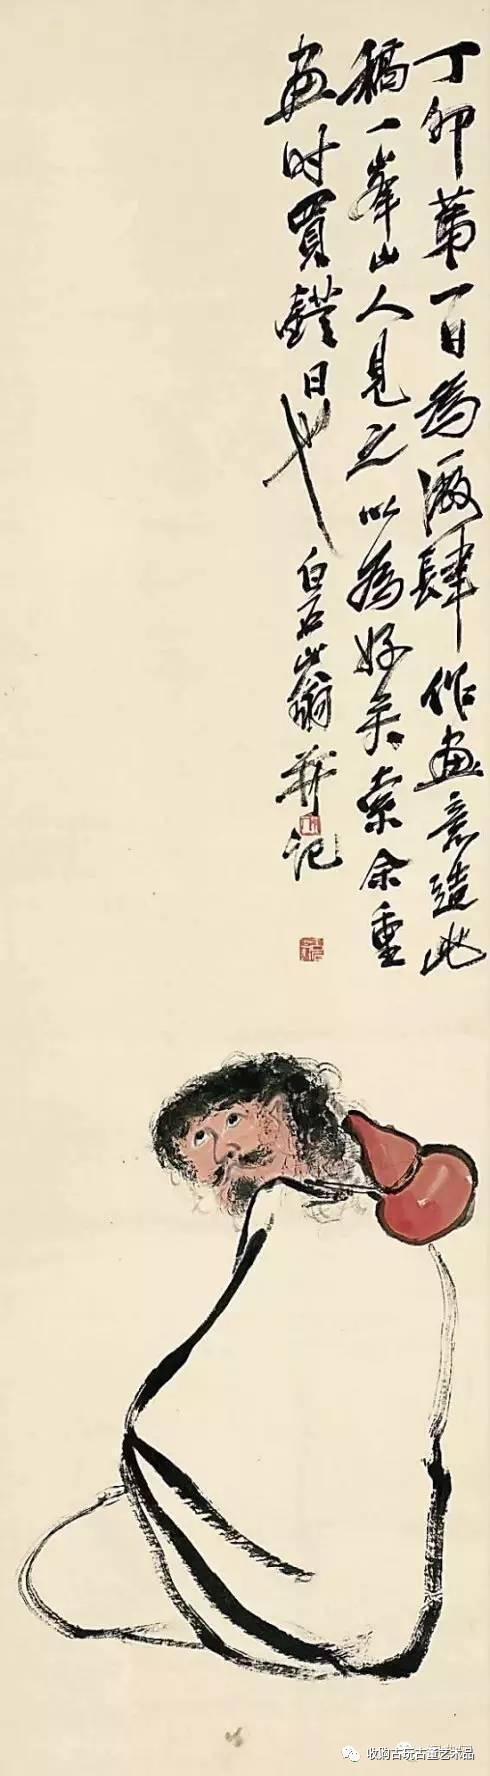 丁卯第一日為厰肆作画意造此
稿一峯山人見之以為好矣索余重
画时買鐙日也 白石山翁并记
收购古玩古董艺术品